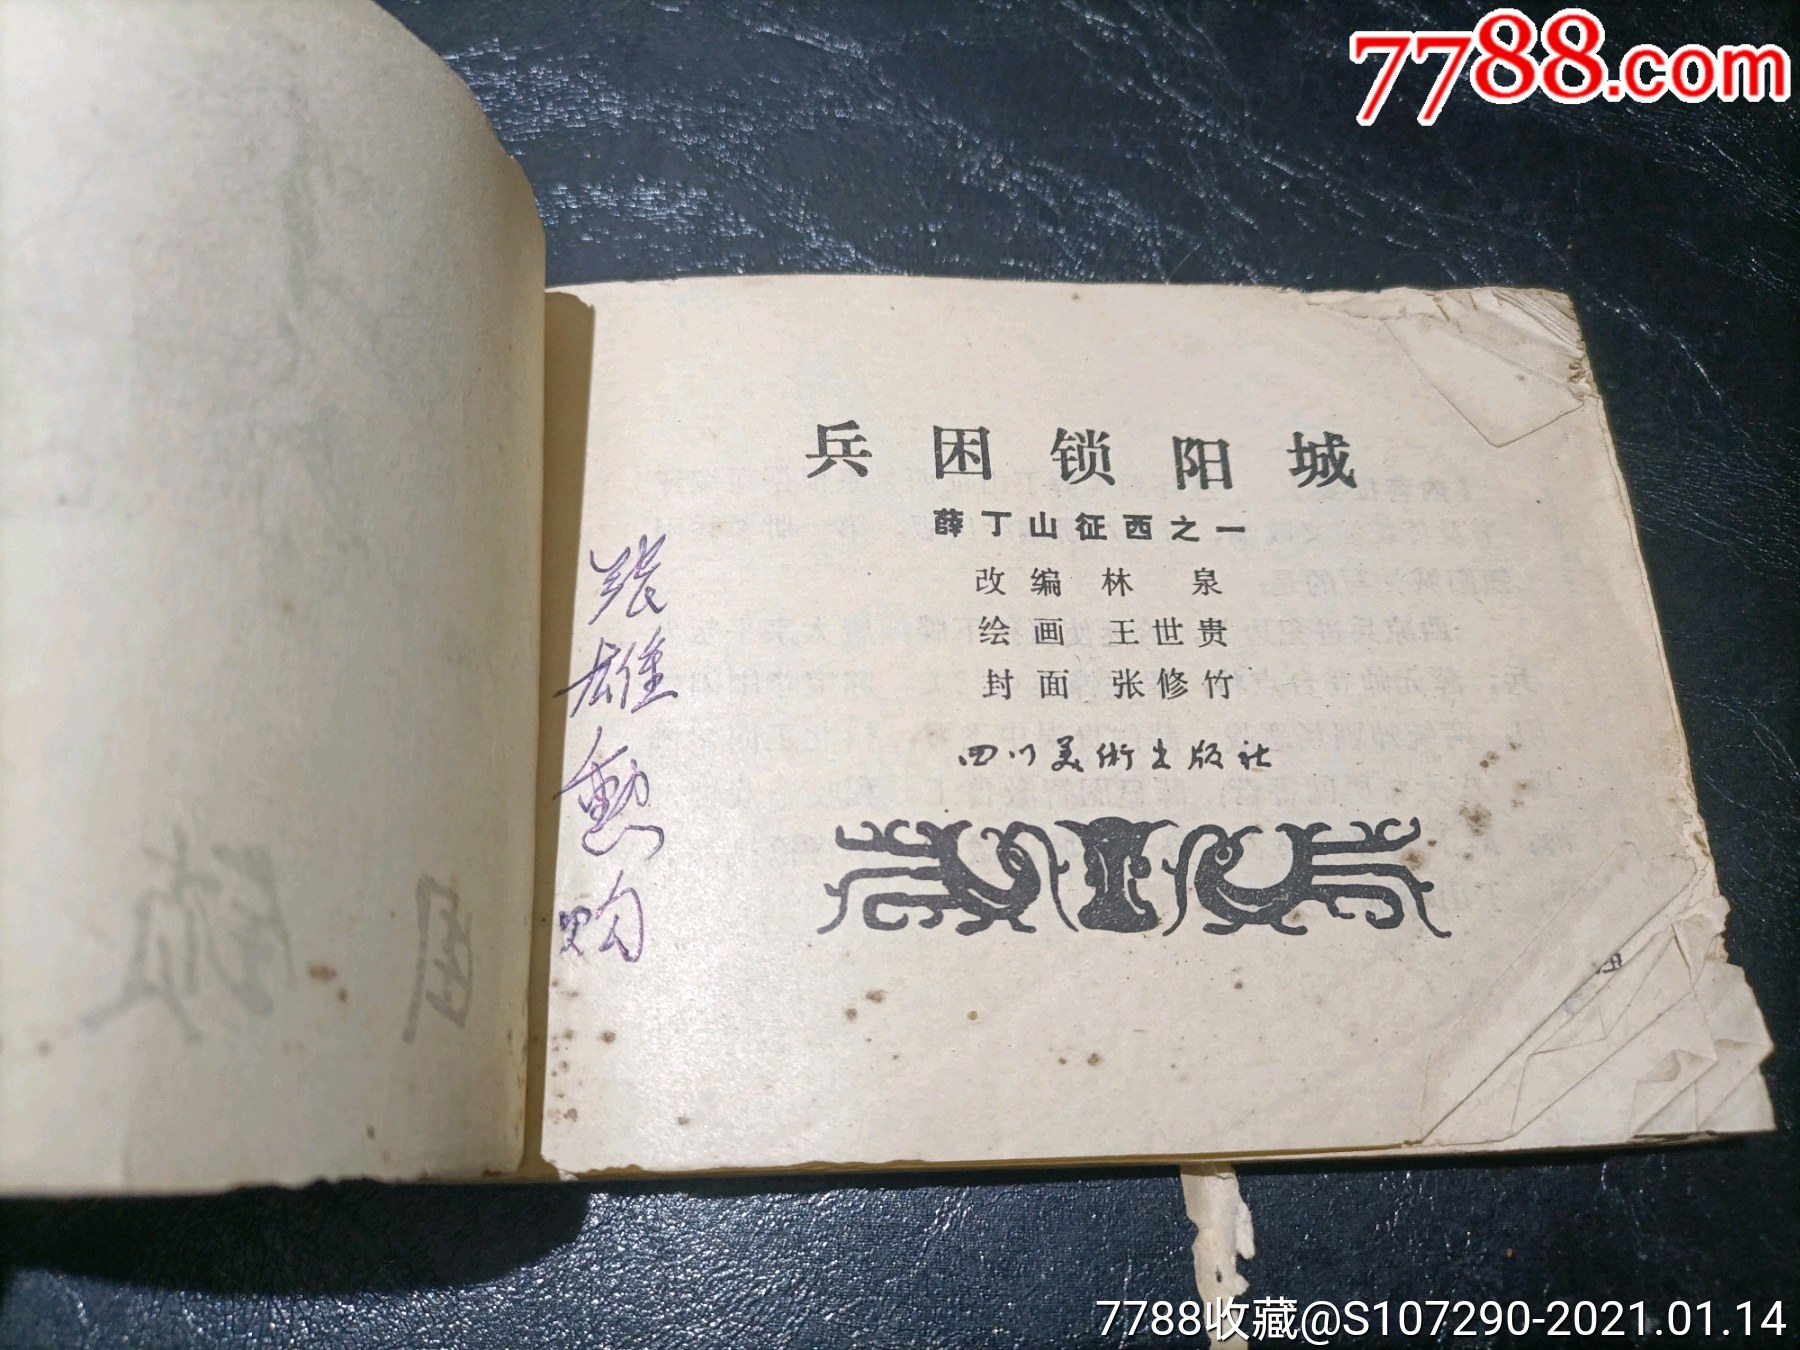 7788.com
兵困锁阳城
薛丁山征西之一
改编 林 泉
绘画 王世贵
封面 张修竹
四川美術出版社
張雄勳购
7788收藏@S107290-2021.01.14